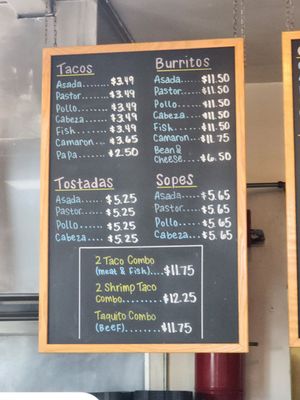 Tacos
Asada.......$3.49
Pastor......$3.49
Pollo.......$3.49
Cabeza......$3.49
Fish........$3.49
Camaron.....$3.65
Papa........$2.50
Burritos
Asada.......$11.50
Pastor......$11.50
Pollo.......$11.50
Cabeza......$11.50
Fish........$11.50
Camaron.....$11.75
Bean &
Cheese....$6.50
Tostadas
Asada.....$5.25
Pastor....$5.25
Pollo.....$5.25
Cabeza....$5.25
Sopes
Asada.....$5.65
Pastor....$5.65
Pollo.....$5.65
Cabeza....$5.65
2 Taco Combo
(meat & fish)....$11.75
2 Shrimp Taco
Combo..........$12.25
Taquito Combo
(Beef).........$11.75